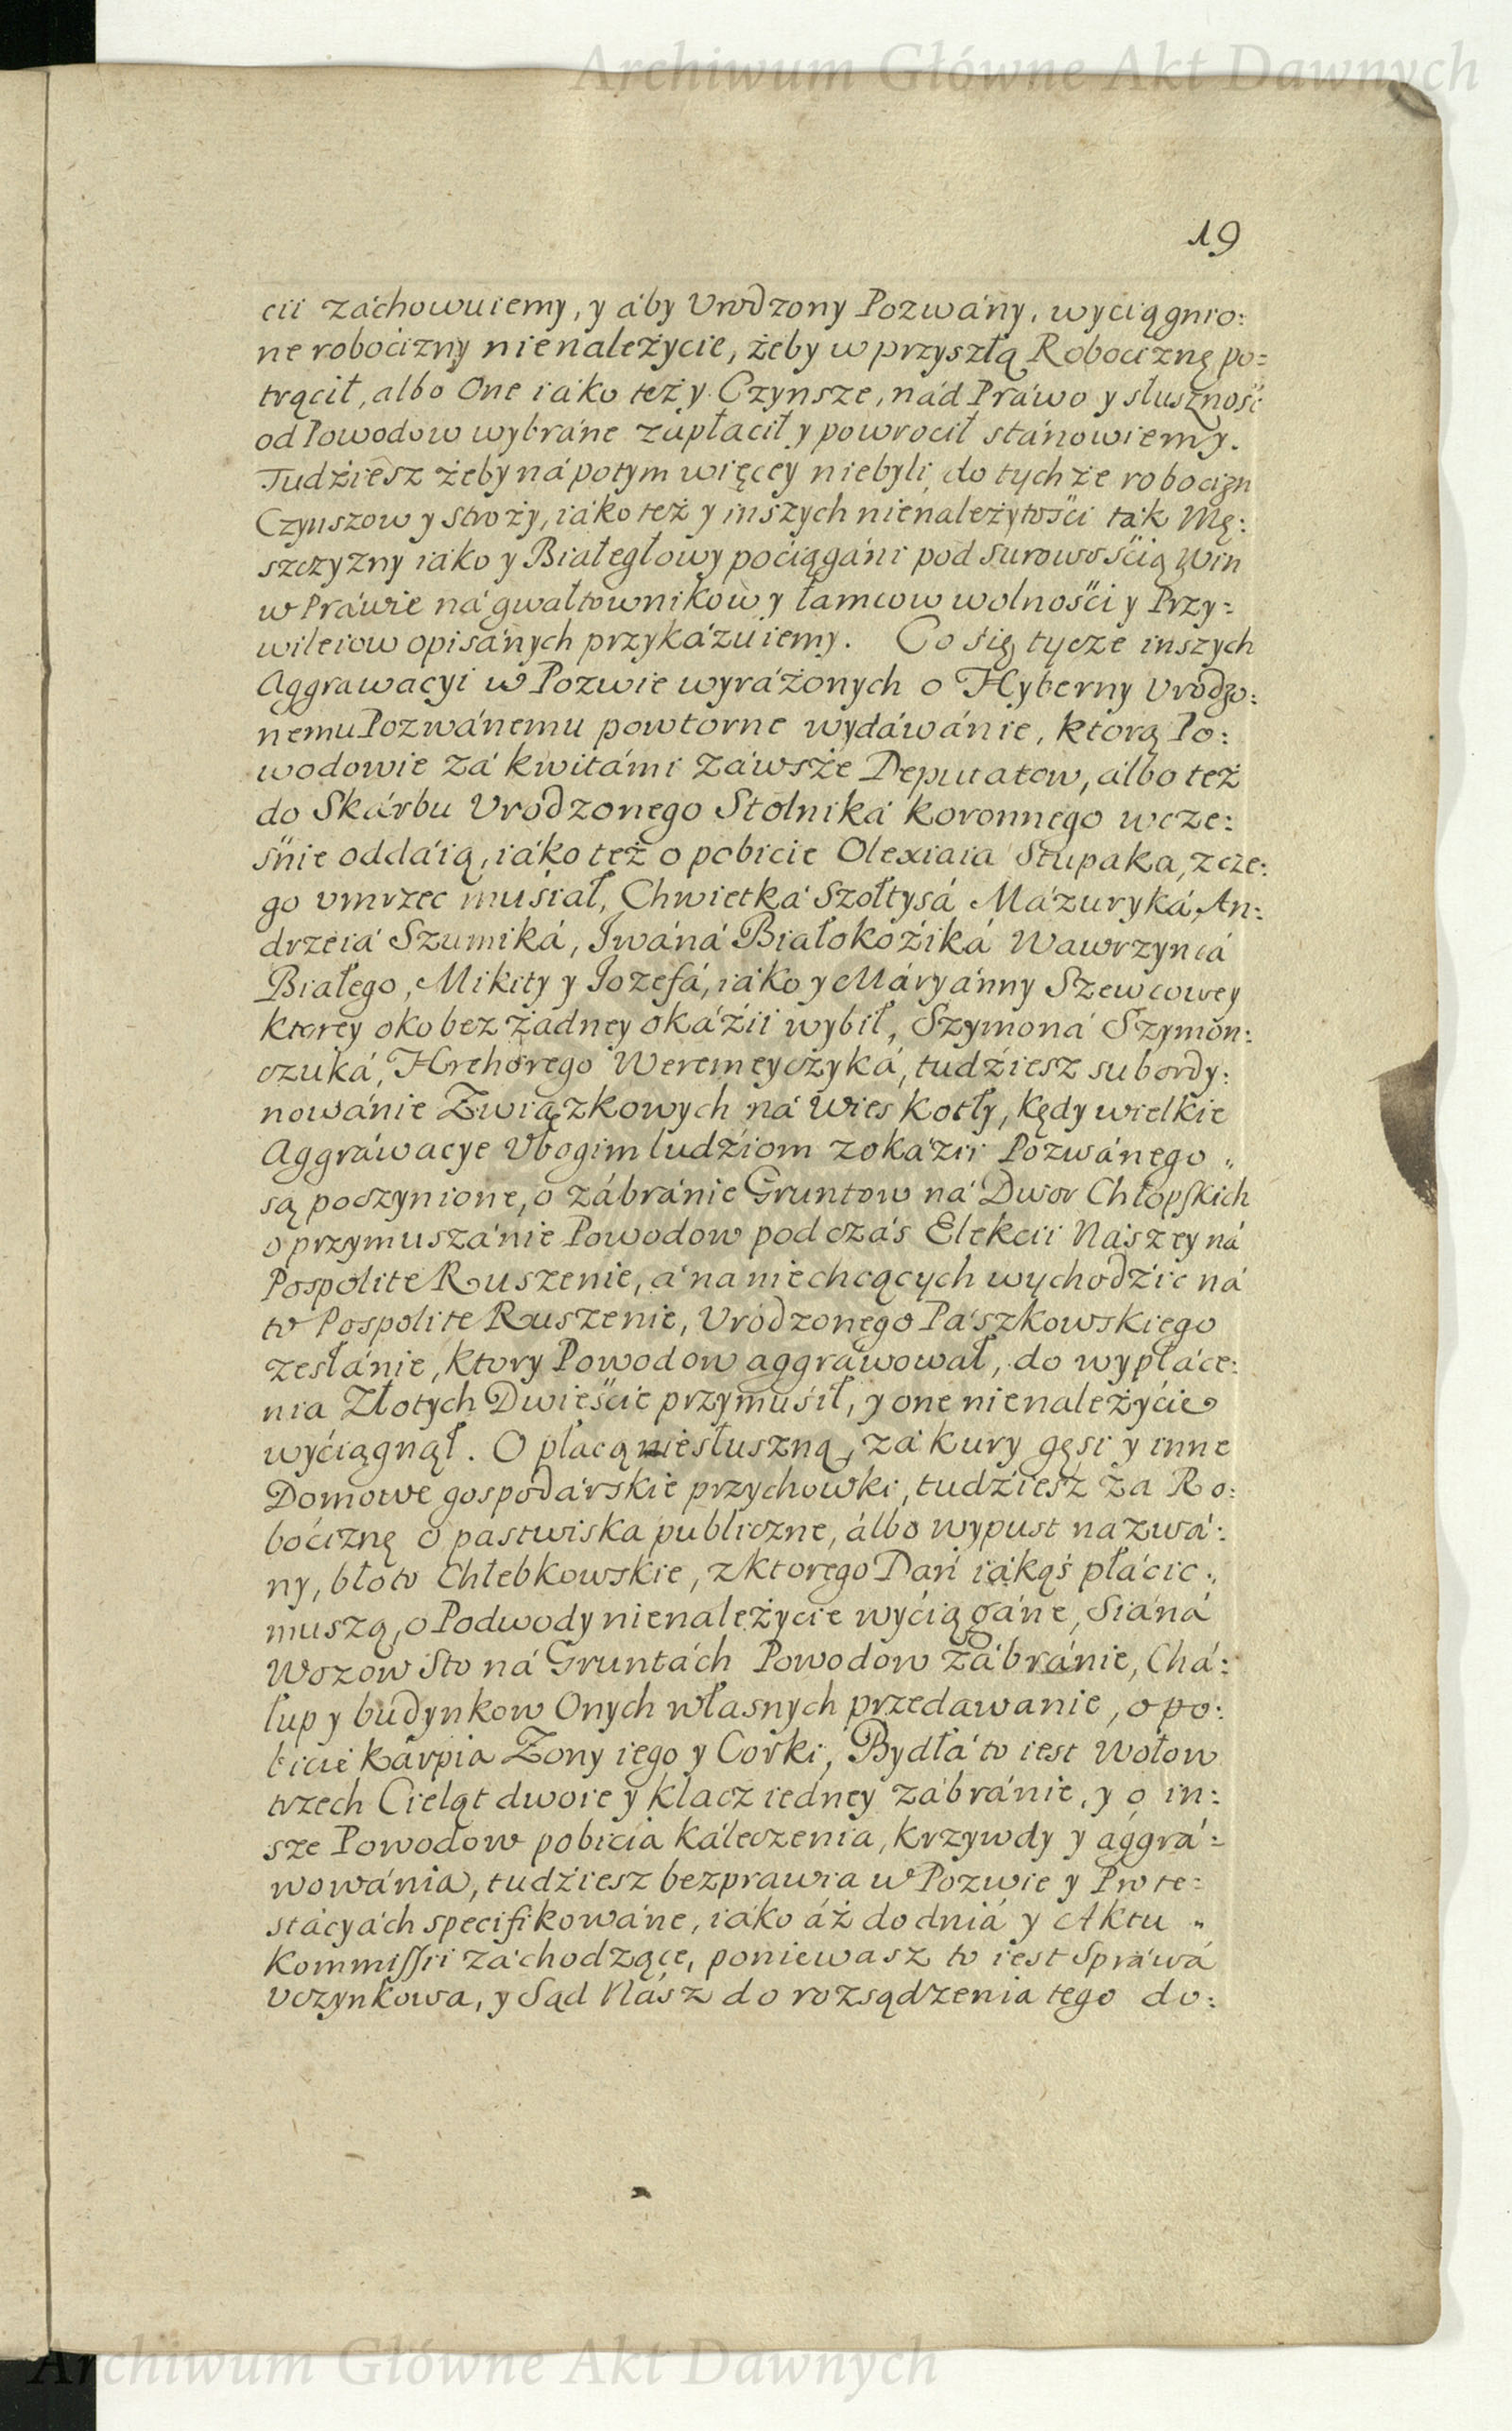 Archiwum Główne Akt Dawnych
19
cii záchowuiemy, y áby Vrodzony Pozwány, wyciągnio:
ne robocizny nienależycie, żeby w przyszłą Robociznę po=
trącił, albo One iáko też y Czynsze, nád Práwo y słuszność
od Powodow wybráne zápłacił y powrocił stánowiemy.
Tudźiesz żeby nápotym więcey niebyli do tychże robocizn
Czynszow y stroży, iáko też y inszych nienależytości ták Mę:
szczyzny iako y Białegłowy pociągáni pod surowością win
w Práwie ná gwałtownikow y łamcow wolności y Przy=
wileiow opisánych przykázuiemy. Co śię tycze inszych
Aggrawacyi w Pozwie wyráżonych o Hyberny Vrodzo:
nemu Pozwánemu powtorne wydáwánie, ktorą Po:
wodowie zá kwitámi záwsże Deputatow, álbo też
do Skárbu Vrodzonego Stolniká koronnego wcze:
śnie oddáią, iáko też o pobicie Olexiaia Stupaka, z cze:
go vmrzec musiał, Chwietká Szołtysá Mázuryká, An:
drzeiá Szumiká, Iwáná Białokoźiká Wawrzyncá
Białego, Mikity y Iozefá, iáko y Máryánny Szewcowey
ktorey oko bez żadney okáźii wybił, Szymoná Szymon:
czuká, Hrehorego Weremeyczyká, tudźiesz subordy:
nowánie Związkowych ná wies kotły, kędy wielkie
Aggráwacye Vbogim ludźiom z okáźii Pozwánego „
są poczynione, o zábránie Gruntow ná Dwor Chłopskich
o przymuszánie Powodow podczás Elekcii Nászey ná
Pospolite Ruszenie, á na niechcących wychodźic ná
to Pospolite Ruszenie, Vrodzonego Pászkowskiego
zesłánie, ktory Powodow aggráwował, do wypłáce:
nia Złotych Dwieście przymuśił, y one nienależycie
wyciągnął. O płacą niesłuszną, zá kury gęsi y inne
Domowe gospodárskie przychowki, tudźiesz za Ro:
bociznę o pastwiska publiczne, álbo wypust názwá:
ny, błoto Chlebkowskie, z ktorego Dań iákąś płácic „
muszą, o Podwody nienależycie wyciągáne, Siáná
Wozow Sto ná Gruntách Powodow zábránie, Chá:
łup y budynkow Onych własnych przedawanie, o po:
bicie kárpia Żony iego y Corki, Bydłá to iest wołow
trzech Cieląt dwoie y klacz iedney zábránie, y o in:
sze Powodow pobicia káleczenia, krzywdy y aggrá=
wowánia, tudźiesz bezprawia w Pozwie y Prote:
stácyách specifikowáne, iáko áż do dniá y Aktu „
Kommissii záchodzące, poniewasz to iest Spráwá
Vczynkowa, y Sąd Nász do rozsądzenia tego do:
Archiwum Główne Akt Dawnych